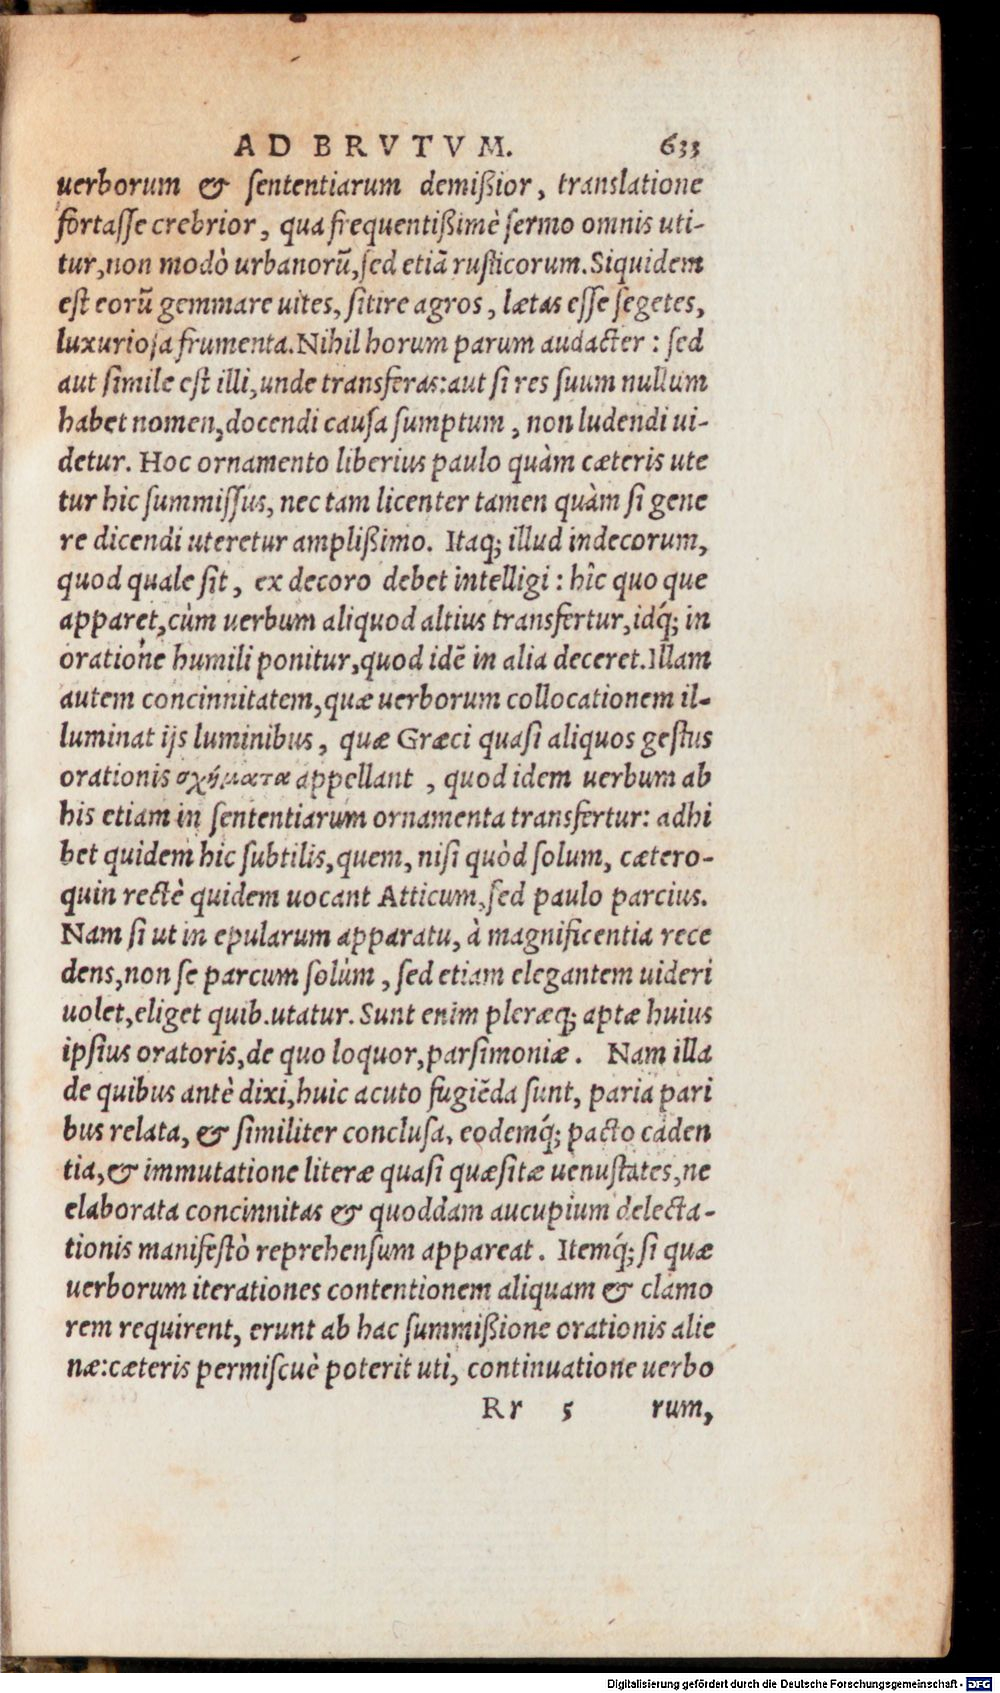 AD BRVTVM. 633
uerborum & sententiarum demißior, translatione
fortasse crebrior, qua frequentißimè sermo omnis uti-
tur, non modò urbanorũ, sed etiã rusticorum. Siquidem
est eorũ gemmare uites, sitire agros, lætas esse segetes,
luxuriosa frumenta. Nihil horum parum audacter: sed
aut simile est illi, unde transferas: aut si res suum nullum
habet nomen, docendi causa sumptum, non ludendi ui-
detur. Hoc ornamento liberius paulo quàm cæteris ute
tur hic summissus, nec tam licenter tamen quàm si gene
re dicendi uteretur amplißimo. Itaq; illud indecorum,
quod quale sit, ex decoro debet intelligi: hîc quo que
apparet, cùm uerbum aliquod altius transfertur, idq́; in
oratione humili ponitur, quod idẽ in alia deceret. Illam
autem concinnitatem, quæ uerborum collocationem il-
luminat ijs luminibus, quæ Græci quasi aliquos gestus
orationis σχήματα appellant, quod idem uerbum ab
his etiam in sententiarum ornamenta transfertur: adhi
bet quidem hic subtilis, quem, nisi quòd solum, cætero-
quin rectè quidem uocant Atticum, sed paulo parcius.
Nam si ut in epularum apparatu, à magnificentia rece
dens, non se parcum solùm, sed etiam elegantem uideri
uolet, eliget quib. utatur. Sunt enim pleræq; aptæ huius
ipsius oratoris, de quo loquor, parsimoniæ. Nam illa
de quibus antè dixi, huic acuto fugiẽda sunt, paria pari
bus relata, & similiter conclusa, eodemq́; pacto caden
tia, & immutatione literæ quasi quæsitæ uenustates, ne
elaborata concinnitas & quoddam aucupium delecta-
tionis manifestò reprehensum appareat. Itemq́; si quæ
uerborum iterationes contentionem aliquam & clamo
rem requirent, erunt ab hac summißione orationis alie
næ: cæteris permiscuè poterit uti, continuatione uerbo
Rr 5 rum,
Digitalisierung gefördert durch die Deutsche Forschungsgemeinschaft - DFG